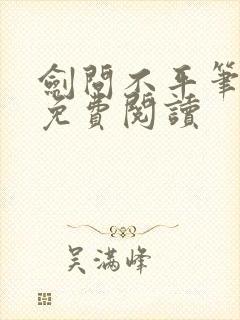 劍問不平筆
免費閱讀
吴滿峰